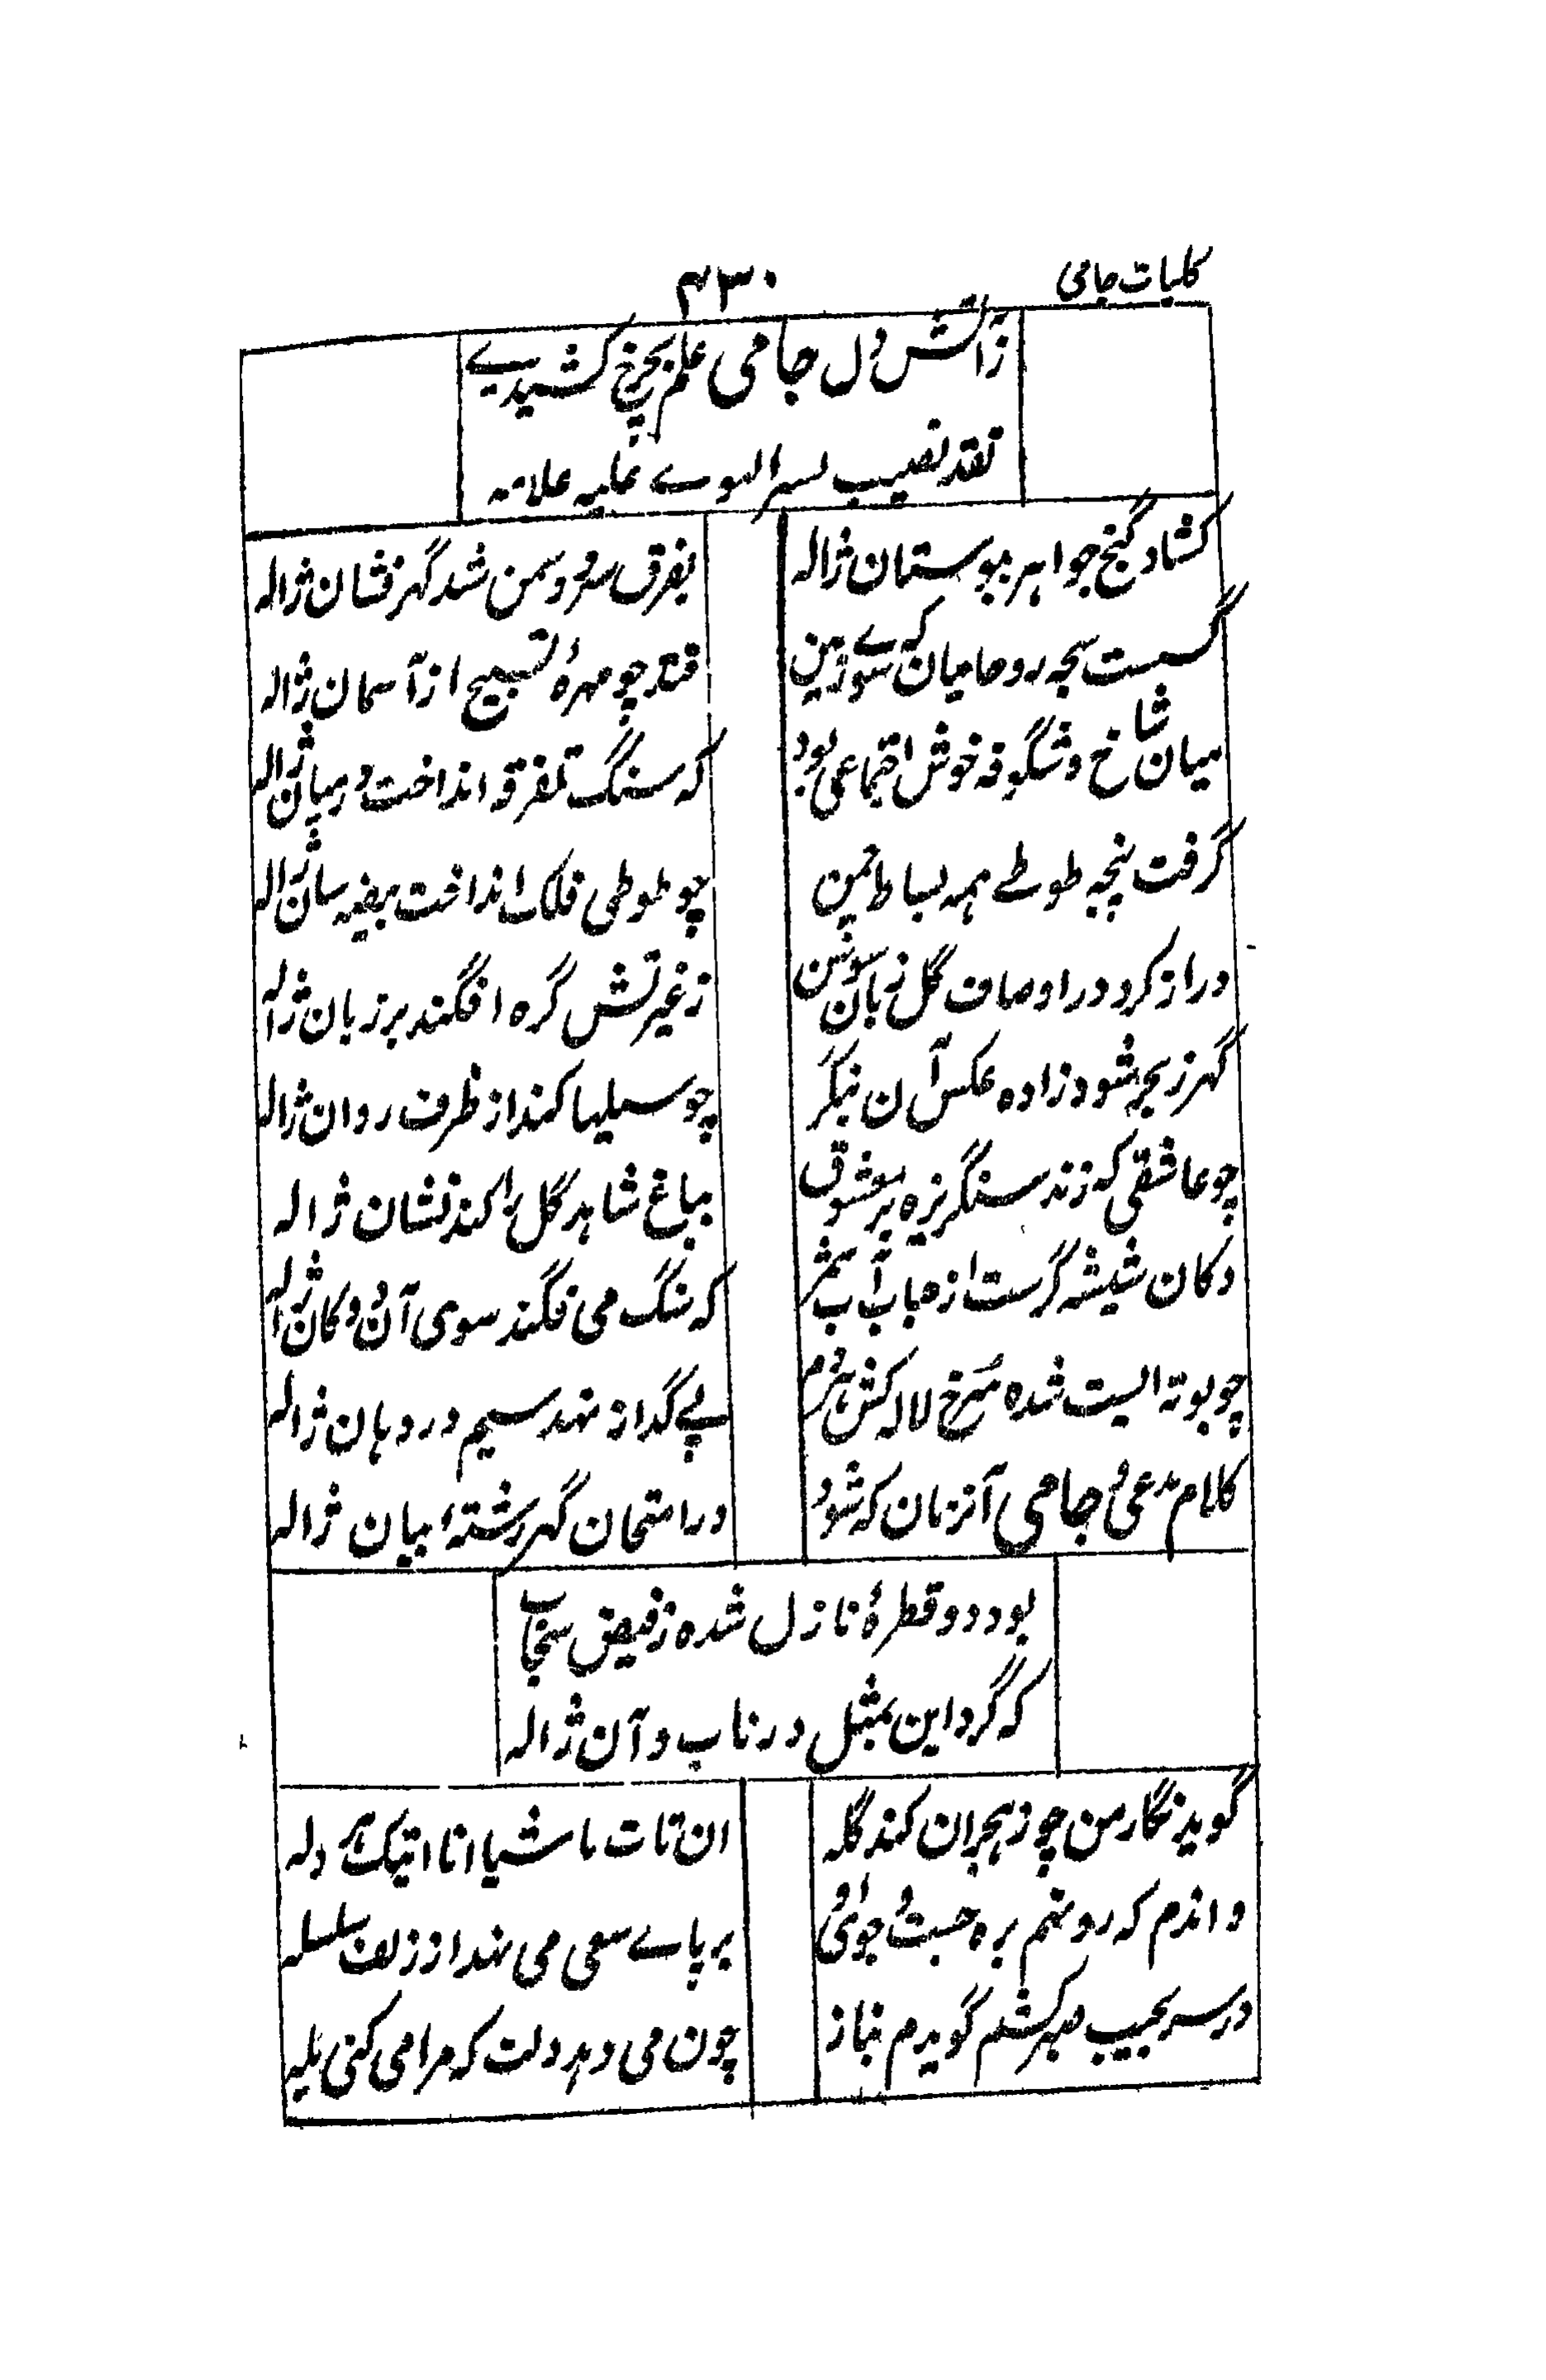 کلیات جامی
۴۳۰
ز آتش دل جامی علم بچرخ کشیدے
فقد نصیب لسر الهوے علیه علامه
کشاد گنج جواهر ببوستان ژاله
بفرق سرو و سمن شد گهرفشان ژاله
گسست سبحه روحانیان که سوے زمین
فتد چو مهرهٔ تسبیح از آسمان ژاله
میان شاخ و شگوفه خوش اجتماعی بود
که سنگ تفرقه انداخت در میان ژاله
گرفت بچیه طوطے همه بساط چمن
چو طوطی فلک انداخت بیضه سان ژاله
دراز کرد در اوصاف گل زبان سوسن
ز غیرتش گره افگند بر زبان ژاله
گهر ز بحر شود زاده عکس آن بنگر
چو سیلها کند از طرف روان ژاله
چو عاشقی که زند سنگریزه بر معشوق
بباغ شاهد گل را کند نشان ژاله
دکان شیشه گرست از حباب آب شمر
که سنگ می فگند سوی آن دکان ژاله
چو بوته ایست شده سرخ لاله کش هردم
پے گداز نهد سیم در دهان ژاله
کلام مدعی و جامی آنزمان که شود
در امتحان گهر رشتهٔ بیان ژاله
بود دو قطرهٔ نازل شده ز فیض سحاب
که گردد این بمثل در ناب و آن ژاله
گوید نگار من چو ز هجران کند گله
ان تات ماشیا انا اتیک هروله
واندم که رو نهم بره جست و جوی او
بر پاے سعی می نهد از زلف سلسله
در سر بجیب صبر کشم گویدم بناز
چون می دهد دلت که مرا می کنی یله